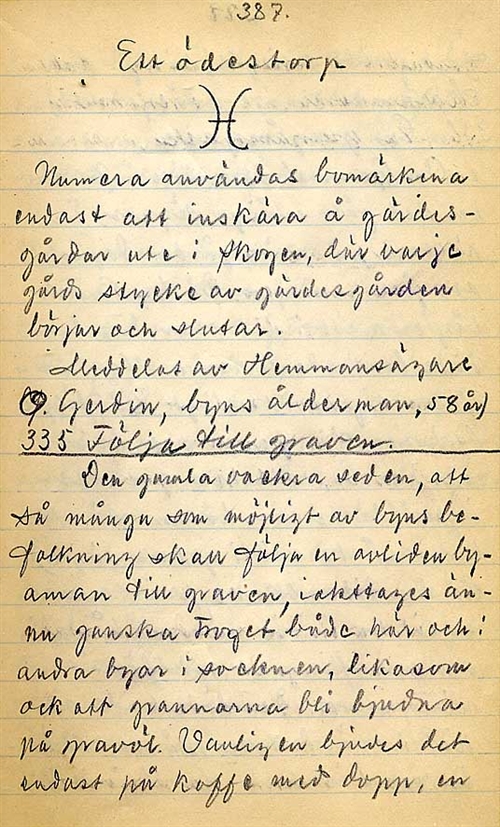 387.
Ett ödestorp
Numera användas bomärkena
endast att inskära å gärdes-
gårdar ute i skogen, där varje
gårds stycke av gärdesgården
börjar och slutar.
Meddelat av Hemmansägare
O. Gerdin, byns ålderman, 58 år)
335 Följa till graven.
Den gamla vackra seden, att
så många som möjligt av byns be-
folkning skall följa en avliden by-
aman till graven, iakttages än-
nu ganska troget både här och i
andra byar i socknen, likasom
ock att grannarna bli bjudna
på gravöl. Vanligen bjudes det
endast på kaffe med dopp, en